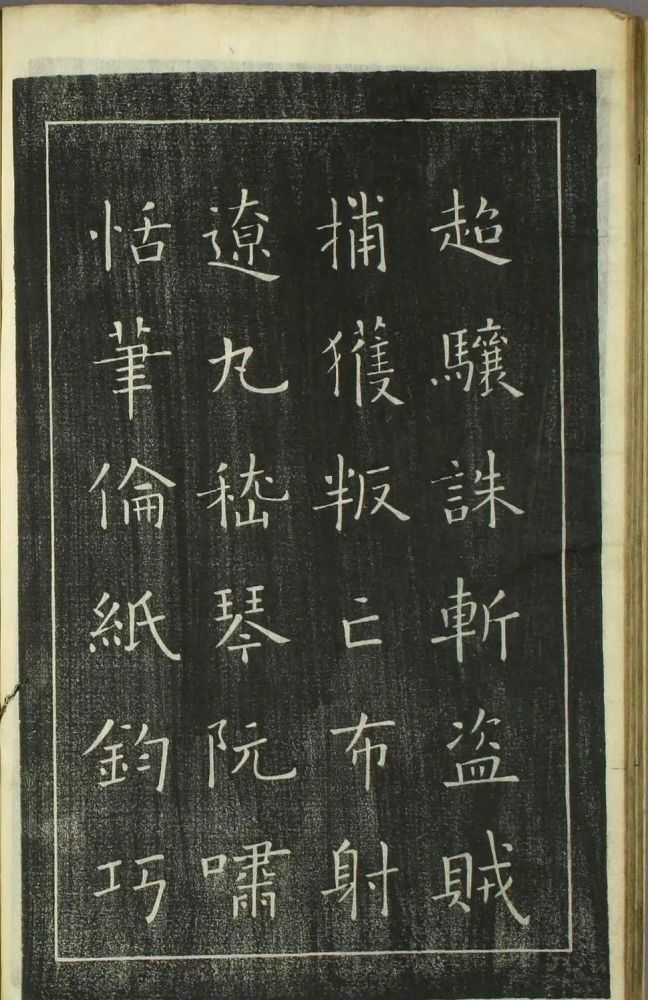 超驤誅斬盜賊
捕獲叛亡布射
遼丸嵇琴阮嘯
恬筆倫紙鈞巧